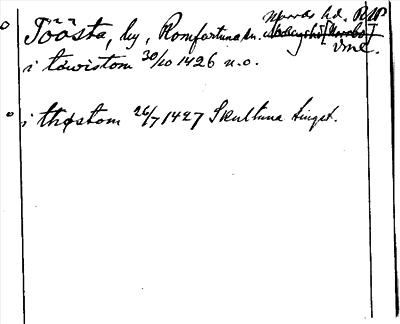 Töösta, by, Romfartuna sn. Norrbo hd.
Vml.
i töwistom 30/10 1426 n.o.
i thøstom 26/7 1427 Skultuna tingst.